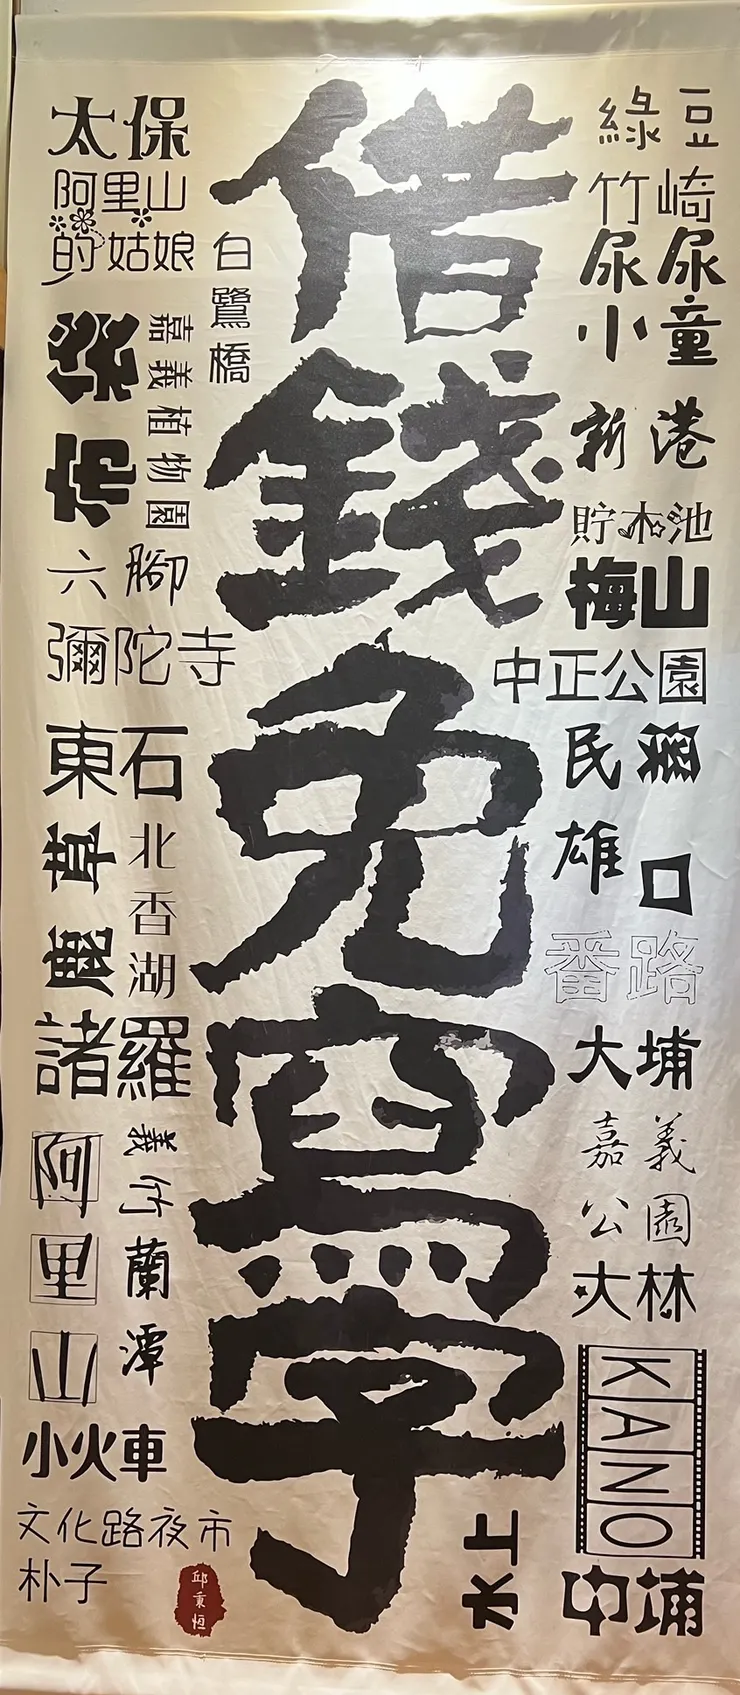 借錢免寫字
綠豆
竹崎
尿尿
小童
新港
貯木池
梅山
中正公園
民雄
溪口
番路
大埔
嘉義
公園
大林
KANO
中埔
水上
太保
阿里山
的姑娘
白鷺橋
布袋
嘉義植物園
六腳
彌陀寺
東石
鹿草
北香湖
諸羅
義竹
阿里山
蘭潭
小火車
文化路夜市
朴子
邱秉恒